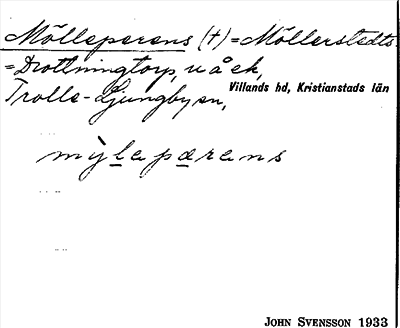 Mölleperens (†) = Möllerstedts
= Drottningtorp, u å ek,
Villands hd, Kristianstads län
Trolle-Ljungby sn,
mỳlapærens
JOHN SVENSSON 1933